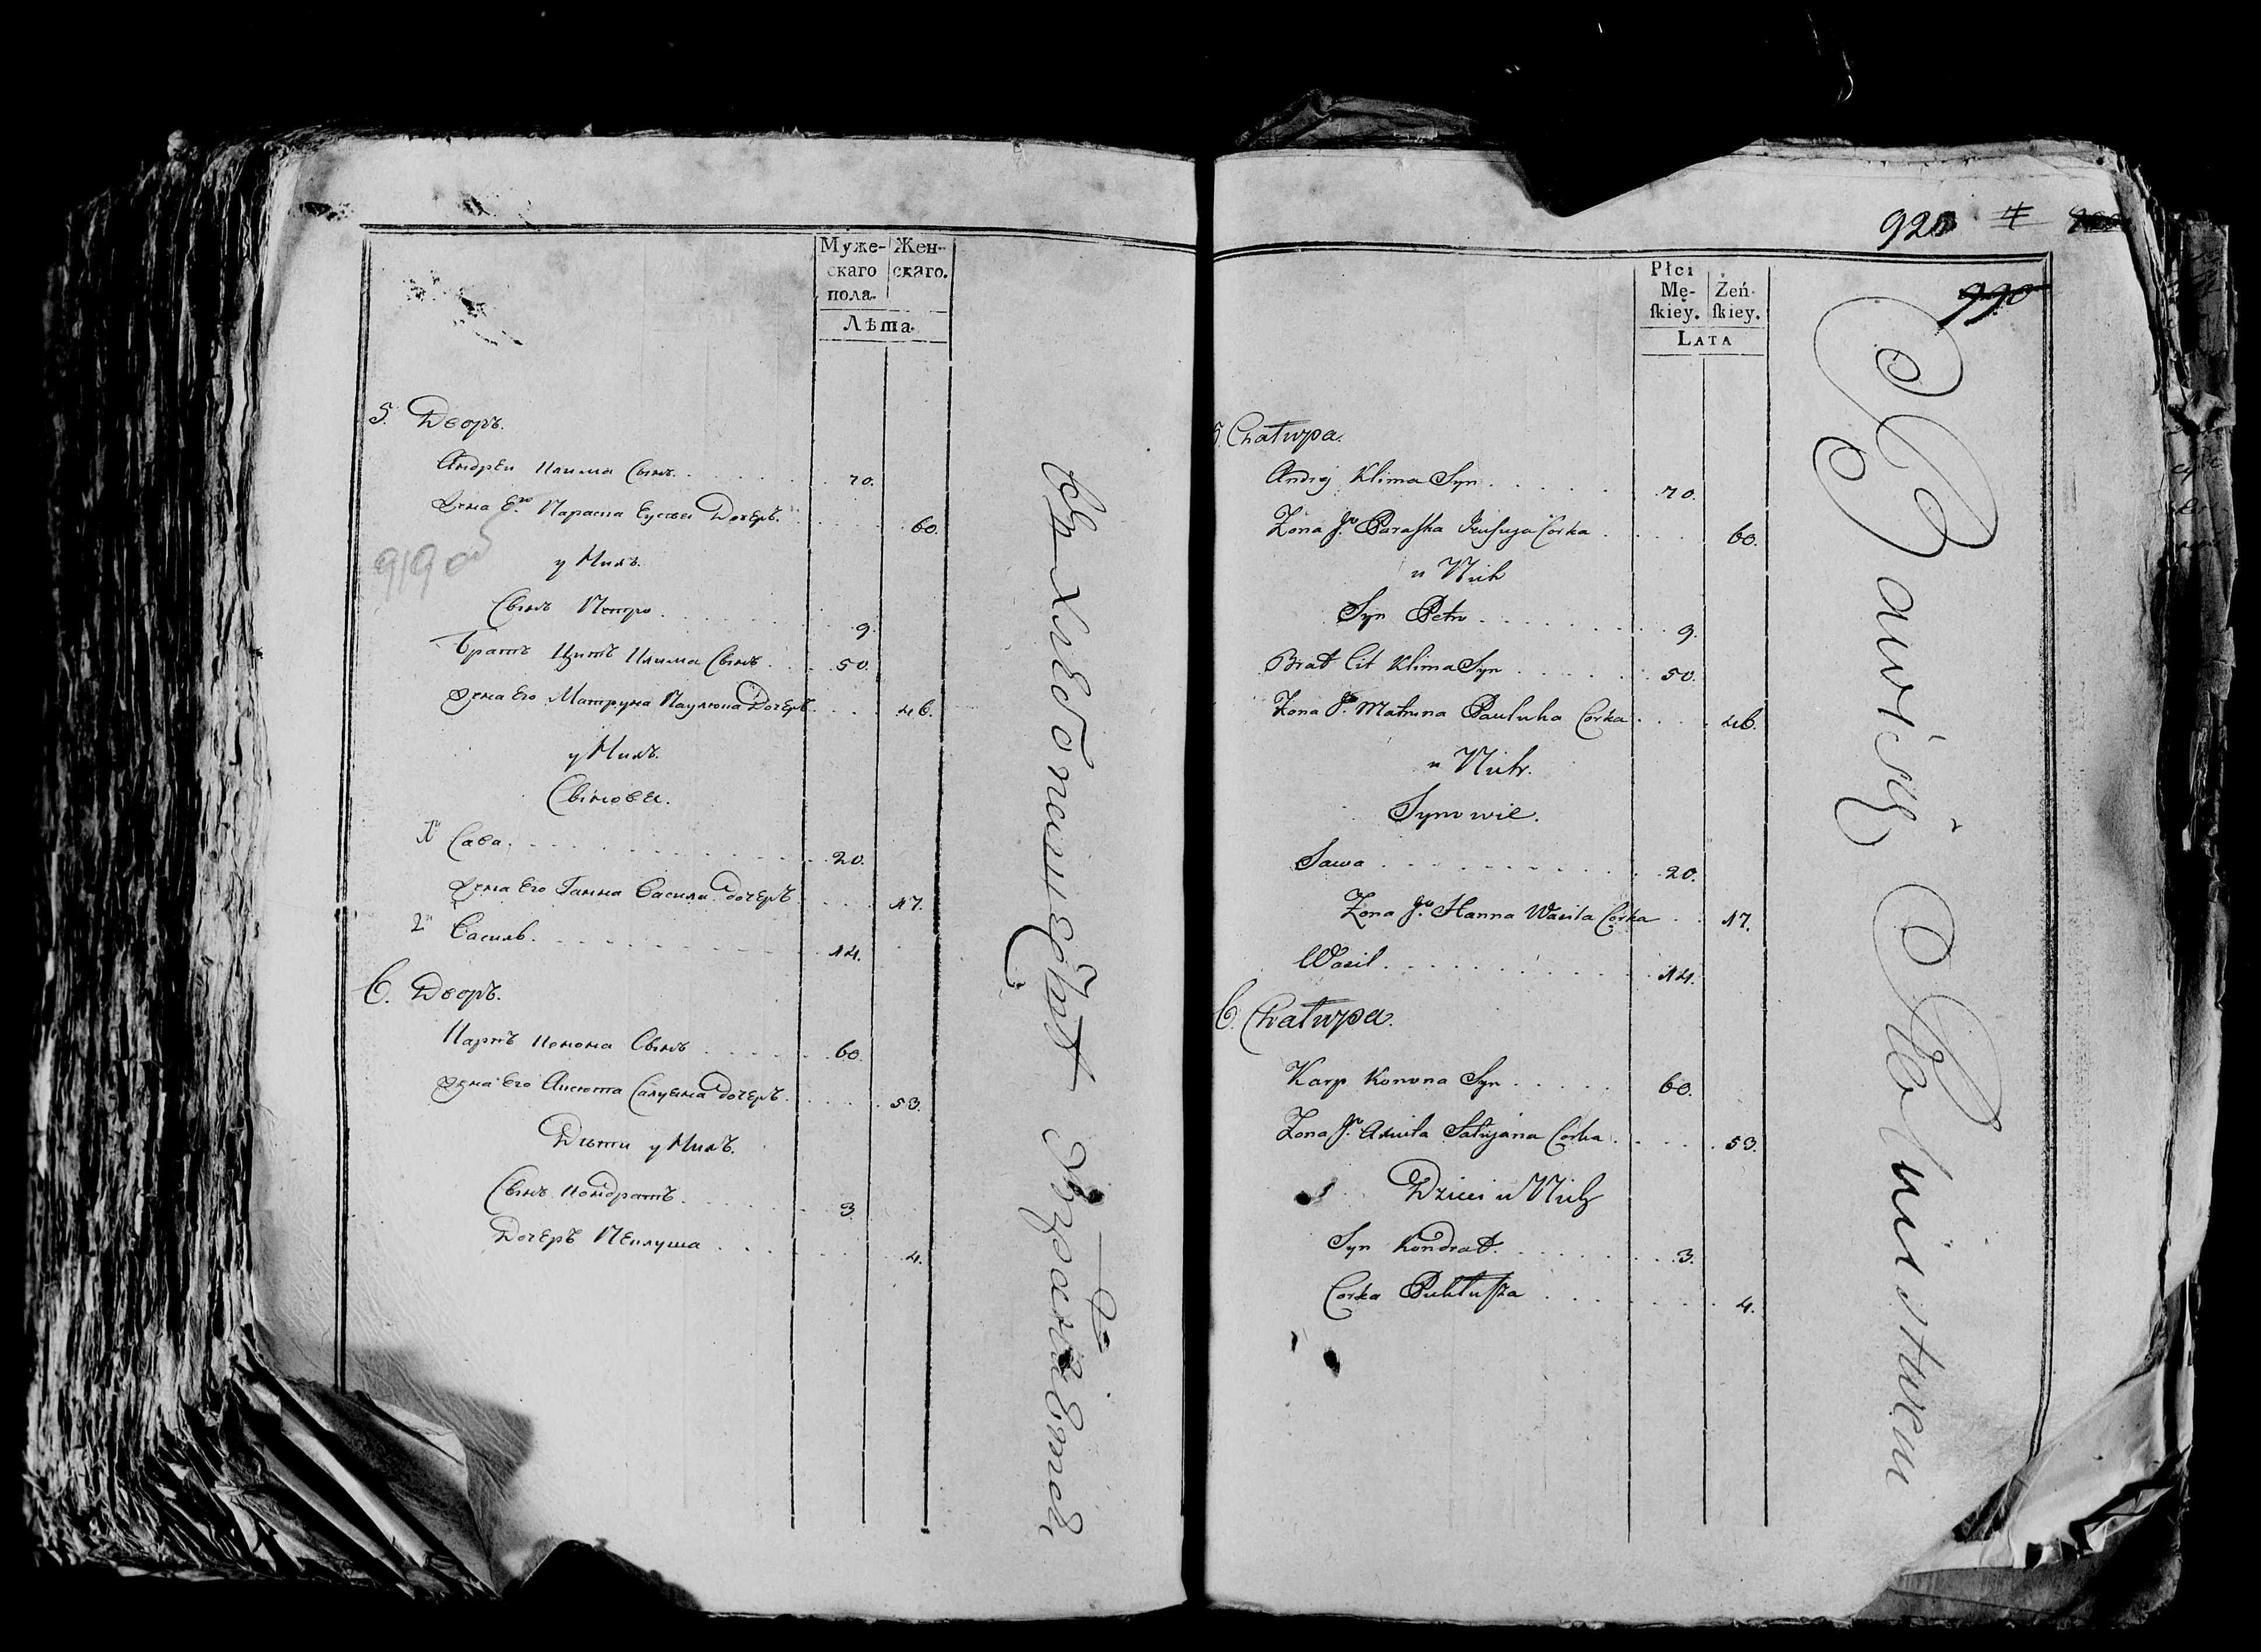 Муже-
скаго
пола.
Жен-
скаго.
Лѣта.
5. Дворъ.
Андрей Клима Сынъ. 70.
Жена Его Параска Дочеръ. 60.
919 об
у Нихъ.
Сынъ Петро. 9.
Братъ Цитъ Клима Сынъ. 50.
Жена Его Матруна Паулюка Дочеръ. 46.
у Нихъ.
Сынове.
1й Сава. 20.
Жена Его Ганна Василя Дочеръ 17.
2й Василь. 14.
6. Дворъ.
Карпъ Конона Сынъ 60.
Жена Его Аксюта Дочеръ. 53.
Дѣти у Нихъ.
Сынъ Кондратъ. 3
Дочеръ Пеклуша 4.
920 #
990
Płci
Mę-
ſkiey.
Żeń-
ſkiey.
LATA
5. Chałupa.
Andrej Klima Syn 70.
Zona Jo Paraſka Corka 60.
u Nich
Syn Petro 9.
Brat Cit Klima Syn 50.
Zona Jo Matruna Pauluka Corka 46.
u Nich.
Synowie.
Sawa 20.
Zona Jo Hanna Wasila Corka 17.
Wasil 14.
6. Chałupa.
Karp Konona Syn 60.
Zona Jo Corka 53.
Dzieci u Nich
Syn Kondrat. 3.
Corka Pekłuſza 4.
Bawiący się Rolnictwem